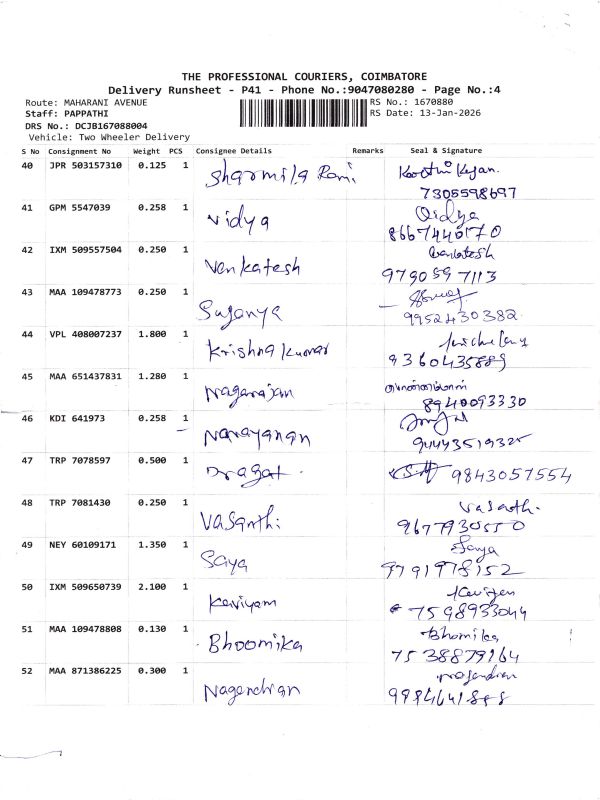 THE PROFESSIONAL COURIERS, COIMBATORE
Delivery Runsheet - P41 - Phone No.:9047080280 - Page No.:4
Route: MAHARANI AVENUE RS No.: 1670880
Staff: PAPPATHI RS Date: 13-Jan-2026
DRS No.: DCJB167088004
Vehicle: Two Wheeler Delivery
S No Consignment No Weight PCS Consignee Details Remarks Seal & Signature
40 JPR 503157310 0.125 1 Sharmila Rani
7305598697
41 GPM 5547039 0.258 1 Vidya Vidya
8667440170
42 IXM 509557504 0.250 1 Venkatesh Venkatesh
9790597113
43 MAA 109478773 0.250 1 Suganya
9952430382
44 VPL 408007237 1.800 1 Krishna Kumar
9360435889
45 MAA 651437831 1.280 1 Nagarajan
8940093330
46 KDI 641973 0.258 1 Narayanan
9444351932
47 TRP 7078597 0.500 1 9843057554
48 TRP 7081430 0.250 1 Vasanthi Vasanth.
9677930550
49 NEY 60109171 1.350 1 Saya Saya
9791978152
50 IXM 509650739 2.100 1 Kaviyam
7598933044
51 MAA 109478808 0.130 1 Bhoomika Bhomika
7538879164
52 MAA 871386225 0.300 1 Nagendran Nagendran